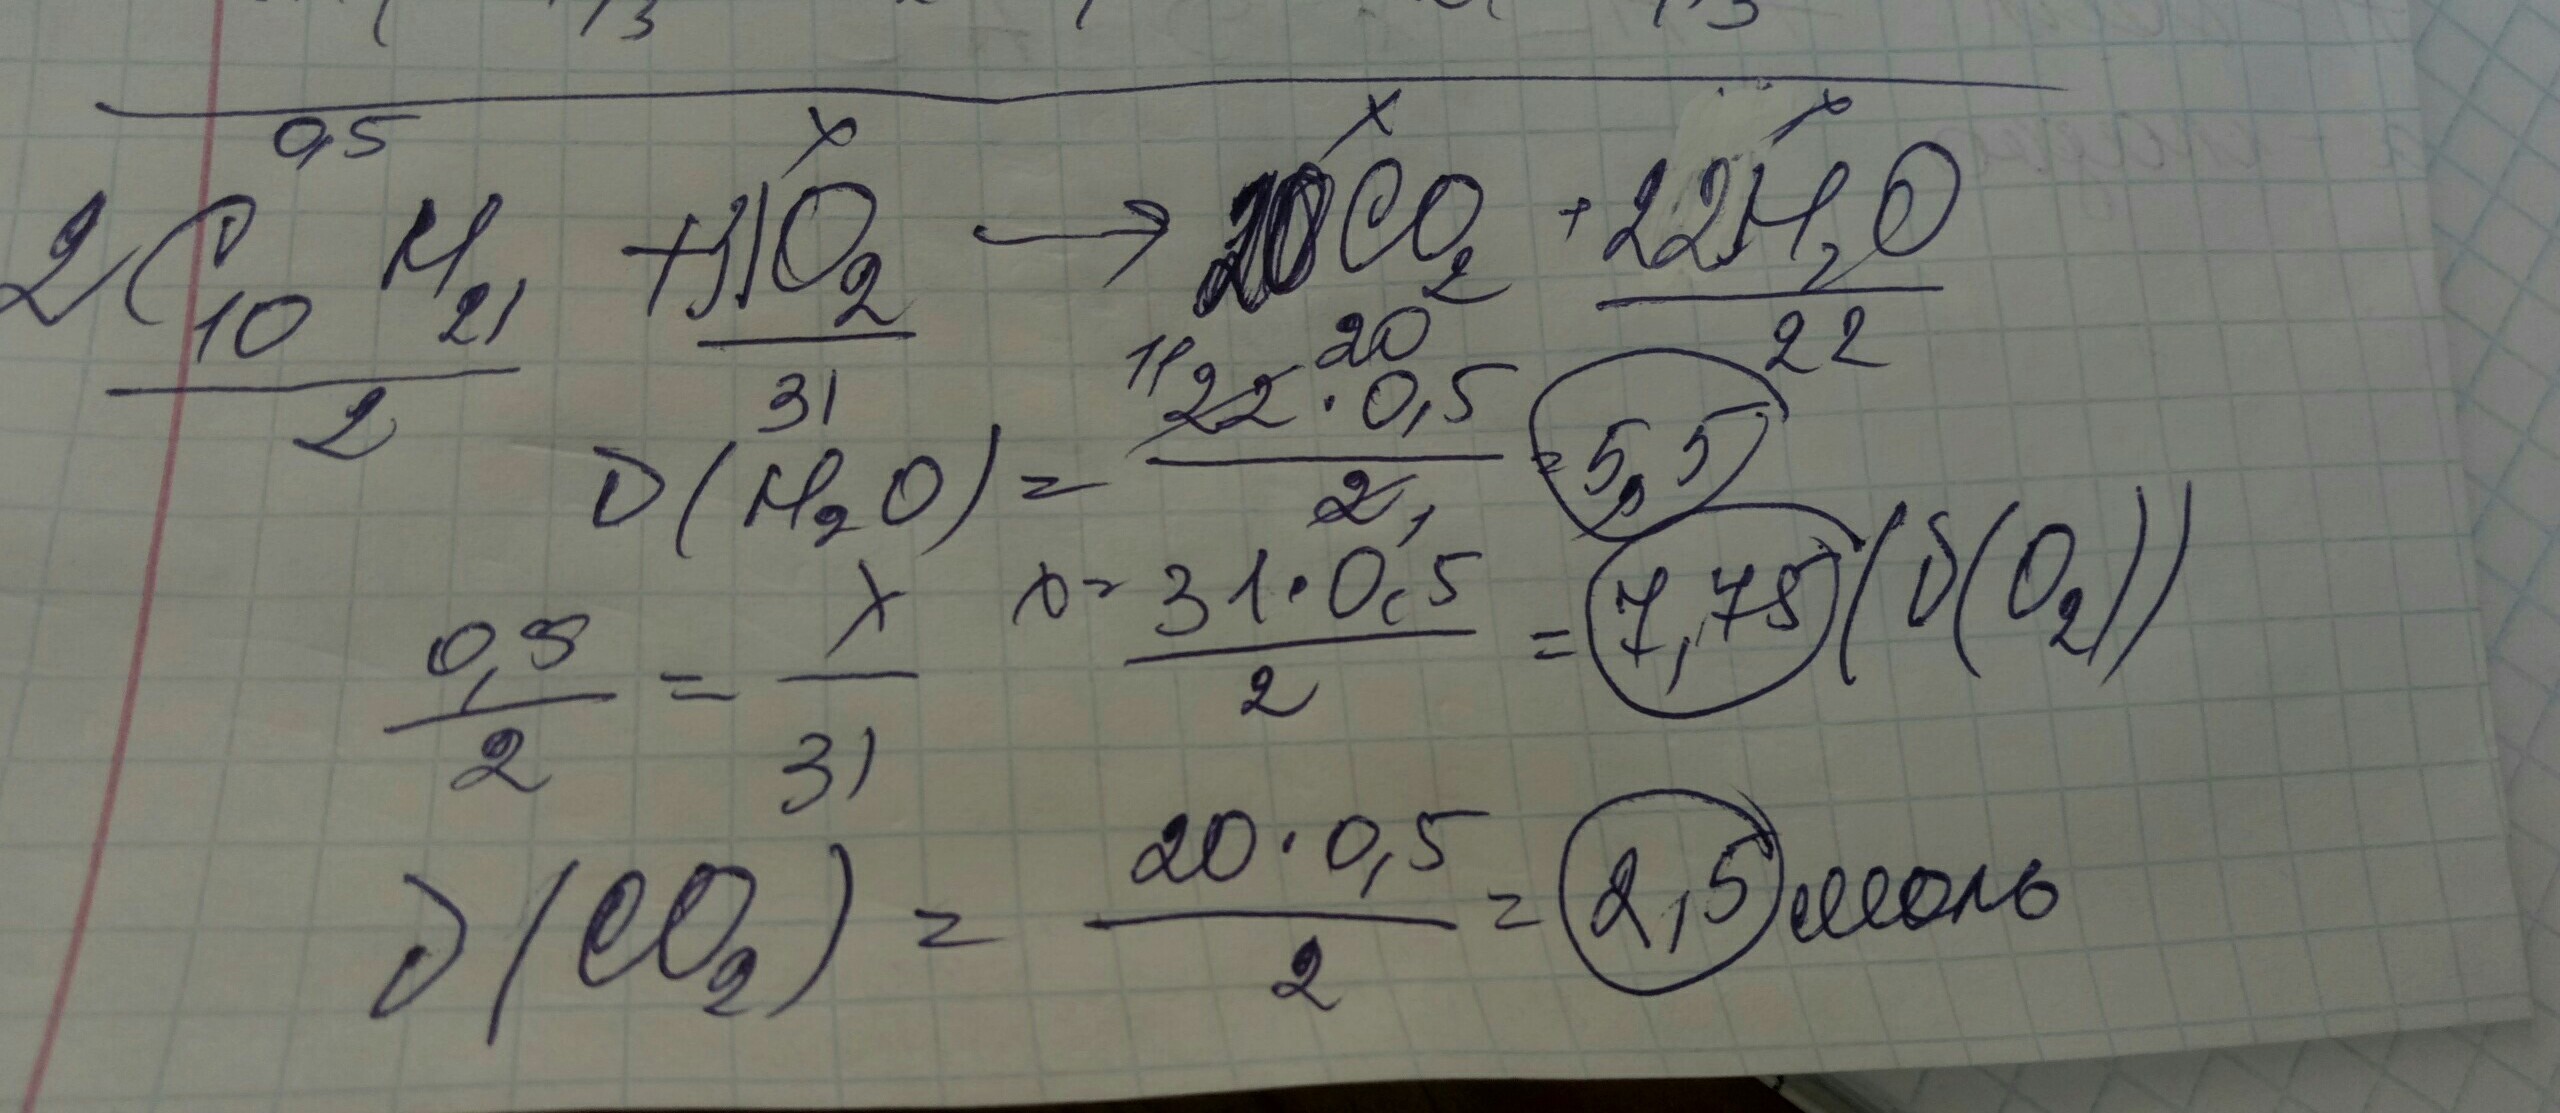 0,5 x x x
2C10H21 + 31O2 → 20CO2 + 22H2O
2 31 20 22
D(H2O) = 11 22 · 0,5 / 2 1 = 5,5
0,5 / 2 = x / 31 x = 31 · 0,5 / 2 = 7,75 (D(O2))
D(CO2) = 20 · 0,5 / 2 = 2,5 моль